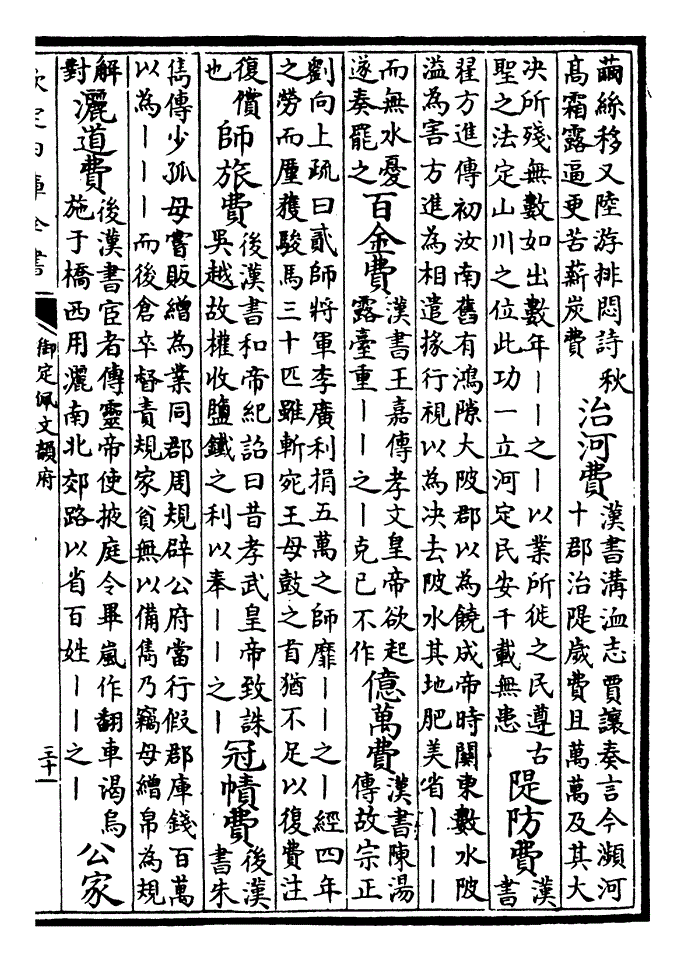 繭絲移又陸游排悶詩秋
高霜露逼更苦薪炭費
治河費
漢書溝洫志賈讓奏言今瀕河
十郡治隄歲費且萬萬及其大
决所殘無數如出數年丨丨之丨以業所徙之民遵古
聖之法定山川之位此功一立河定民安千載無患
隄防費
漢
書
翟方進傳初汝南舊有鴻隙大陂郡以為饒成帝時關東數水陂
溢為害方進為相遣掾行視以為决去陂水其地肥美省丨丨丨
而無水憂
遂奏罷之
百金費
漢書王嘉傳孝文皇帝欲起
露臺重丨丨之丨克己不作
億萬費
漢書陳湯
傳故宗正
劉向上疏曰貳師將軍李廣利捐五萬之師靡丨丨之丨經四年
之勞而厪獲駿馬三十匹雖斬宛王母鼓之首猶不足以復費注
復償
也
師旅費
後漢書和帝紀詔曰昔孝武皇帝致誅
吳越故權收鹽鐵之利以奉丨丨之丨
冠幘費
後漢
書朱
雋傳少孤母嘗販繒為業同郡周規辟公府當行假郡庫錢百萬
以為丨丨丨而後倉卒督責規家貧無以備雋乃竊母繒帛為規
解
對
灑道費
後漢書宦者傳靈帝使掖庭令畢嵐作翻車渴烏
施于橋西用灑南北郊路以省百姓丨丨之丨
公家
欽定四庫全書
御定佩文韻府
三十一